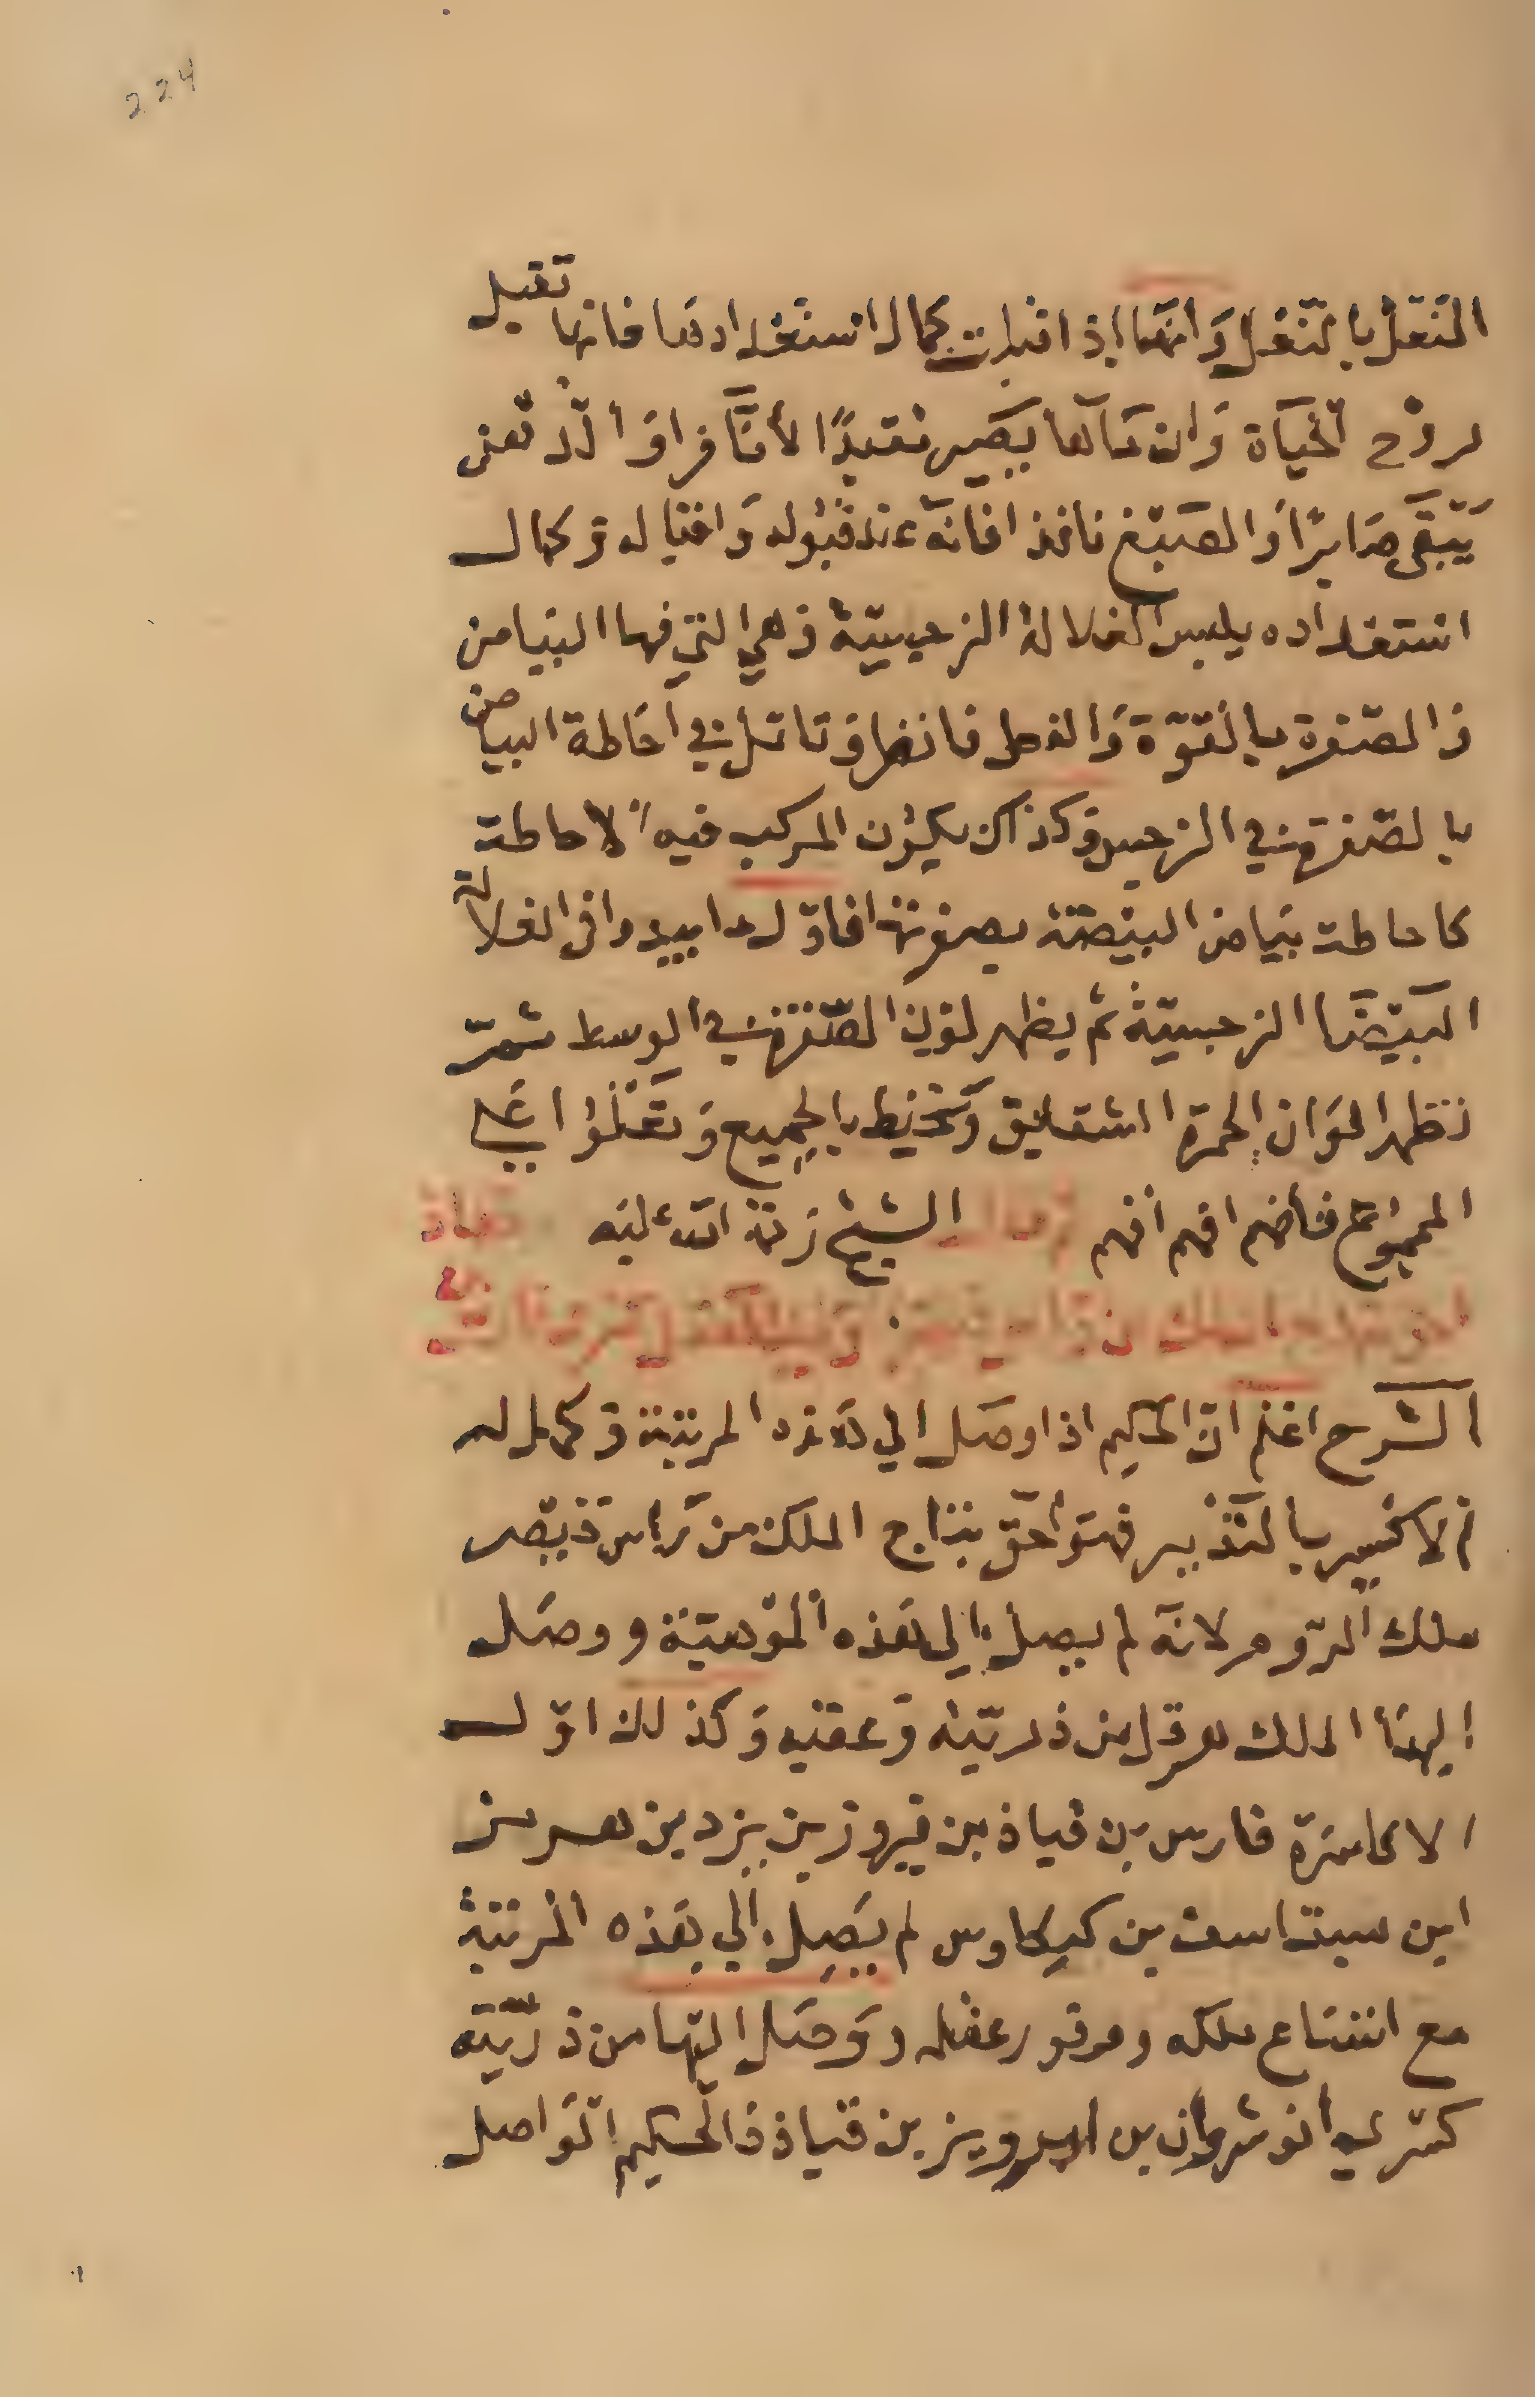 224
الفعل بالفعل وانها اذا قبلت بكمال استعدادها فانها تقبل
روح الحياة وان حالها يصير مقيدًا لامنافرا والدهن
يبقى صابرًا والصبغ نافذا فانه عند قبوله واقباله وكمال
استعداده يلبس الغلالة النرجسية وهي التي فيها البياض
والصفرة بالقوة والفعل فانظر وتامل في احاطة البياض
بالصفرة في النرجس وكذلك يكون المركب فيه الاحاطة
كاحاطة بياض البيضة بصفرتها فاول ما يبدوا في الغلالة
البيضا النرجسية ثم يظهر لون الصفرة في الوسط ثمر
تظهر الوان الحمرة الشقايق وتحيط بالجميع وتعلوا علي
المجموع فافهم افهم افهم قال الشيخ رحمة الله عليه
الشرح اعلم ان الحكيم اذا وصل الي هذه المرتبة وكمل له
الاكسير بالتدبير فهو احق بتاج الملك من راس قيصر
ملك الروم لانه لم يصل الي هذه الموهبة ووصل
اليها الملك هرقل من ذريته وعقبه وكذلك اول
الاكاسرة فارس بن قباذ بن فيروز بن يزد بن هرمز
ابن سبتاسف بن كيكاوس لم يصل الي هذه المرتبة
مع اتساع ملكه ووفور عقله ووصل اليها من ذريته
كسري انوشروان بن ابرويز بن قباذ فالحكيم الواصل